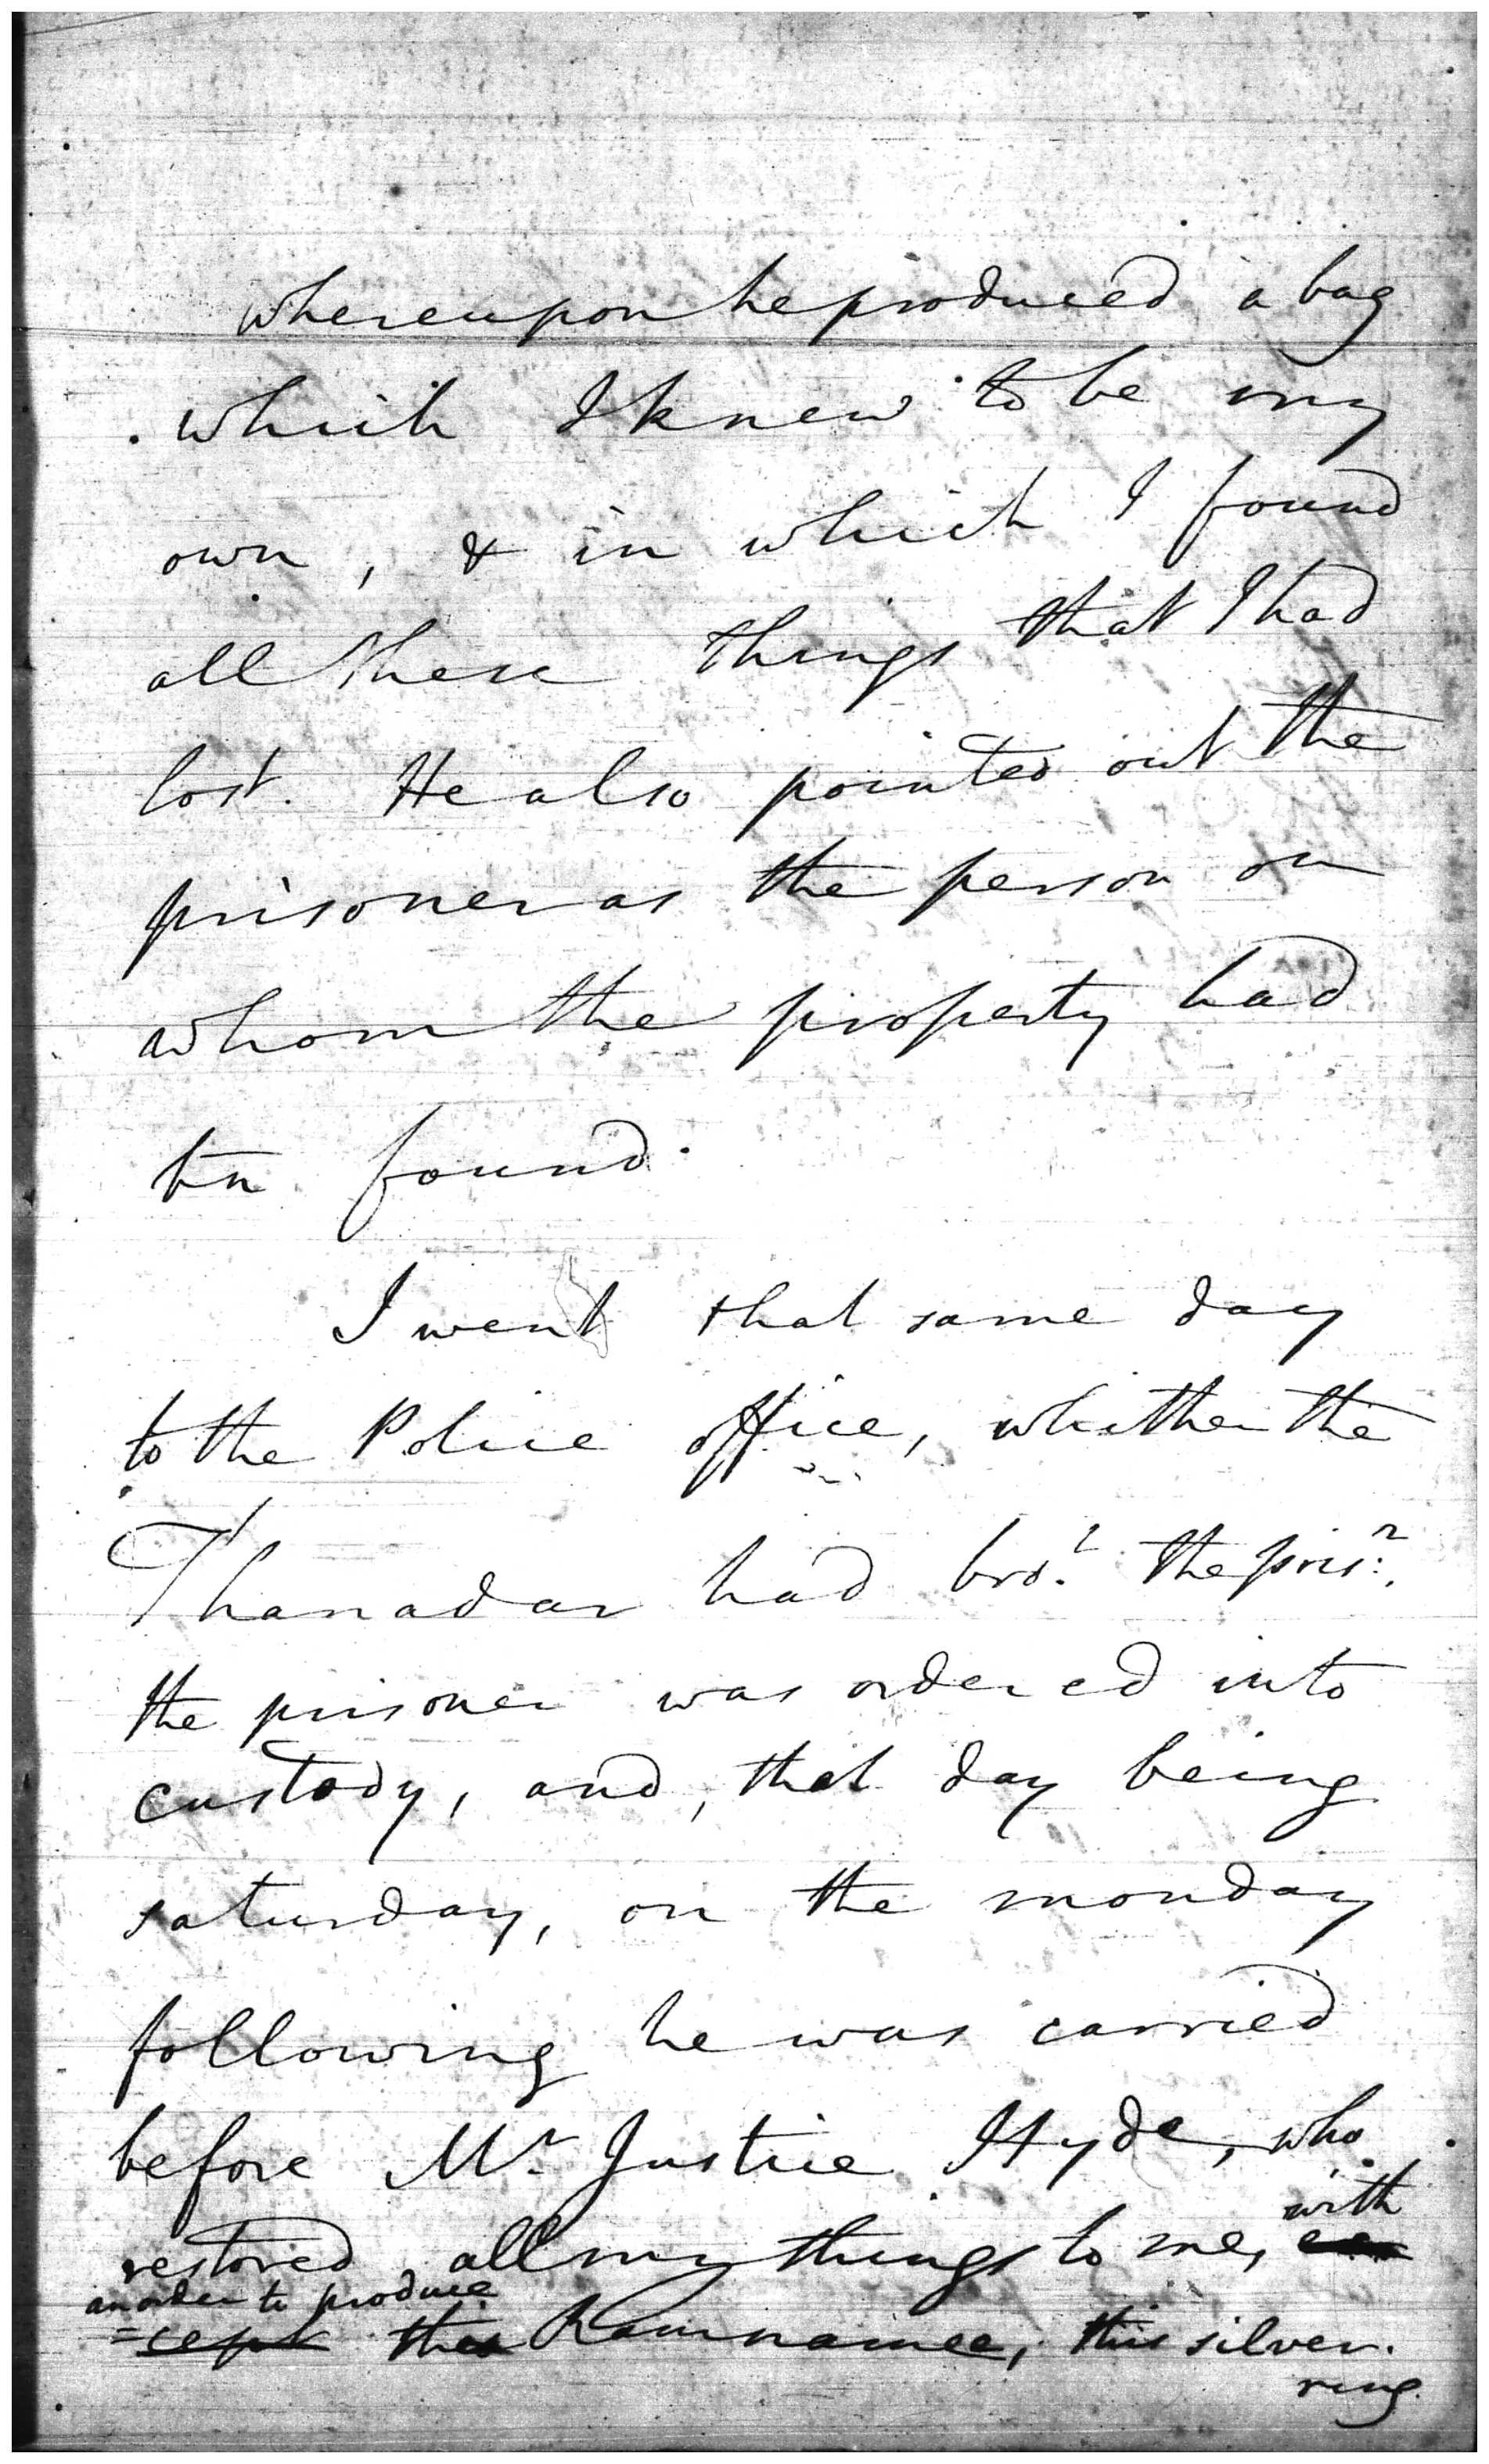 whereupon he produced a bag
which I knew to be my
own, & in which I found
all these things that I had
lost. He also pointed out the
prisoner as the person on
whom the property had
bn found.
I went that same day
to the Police office, whither the
Thanadar had bro.t the pris.r.
the prisoner was ordered into
custody, and, that day being
saturday, on the monday
following he was carried
before Mr Justice Hyde, who
with
restored all my things to me, ex
an order to produce
=cept the Ramnamee, this silver
ring